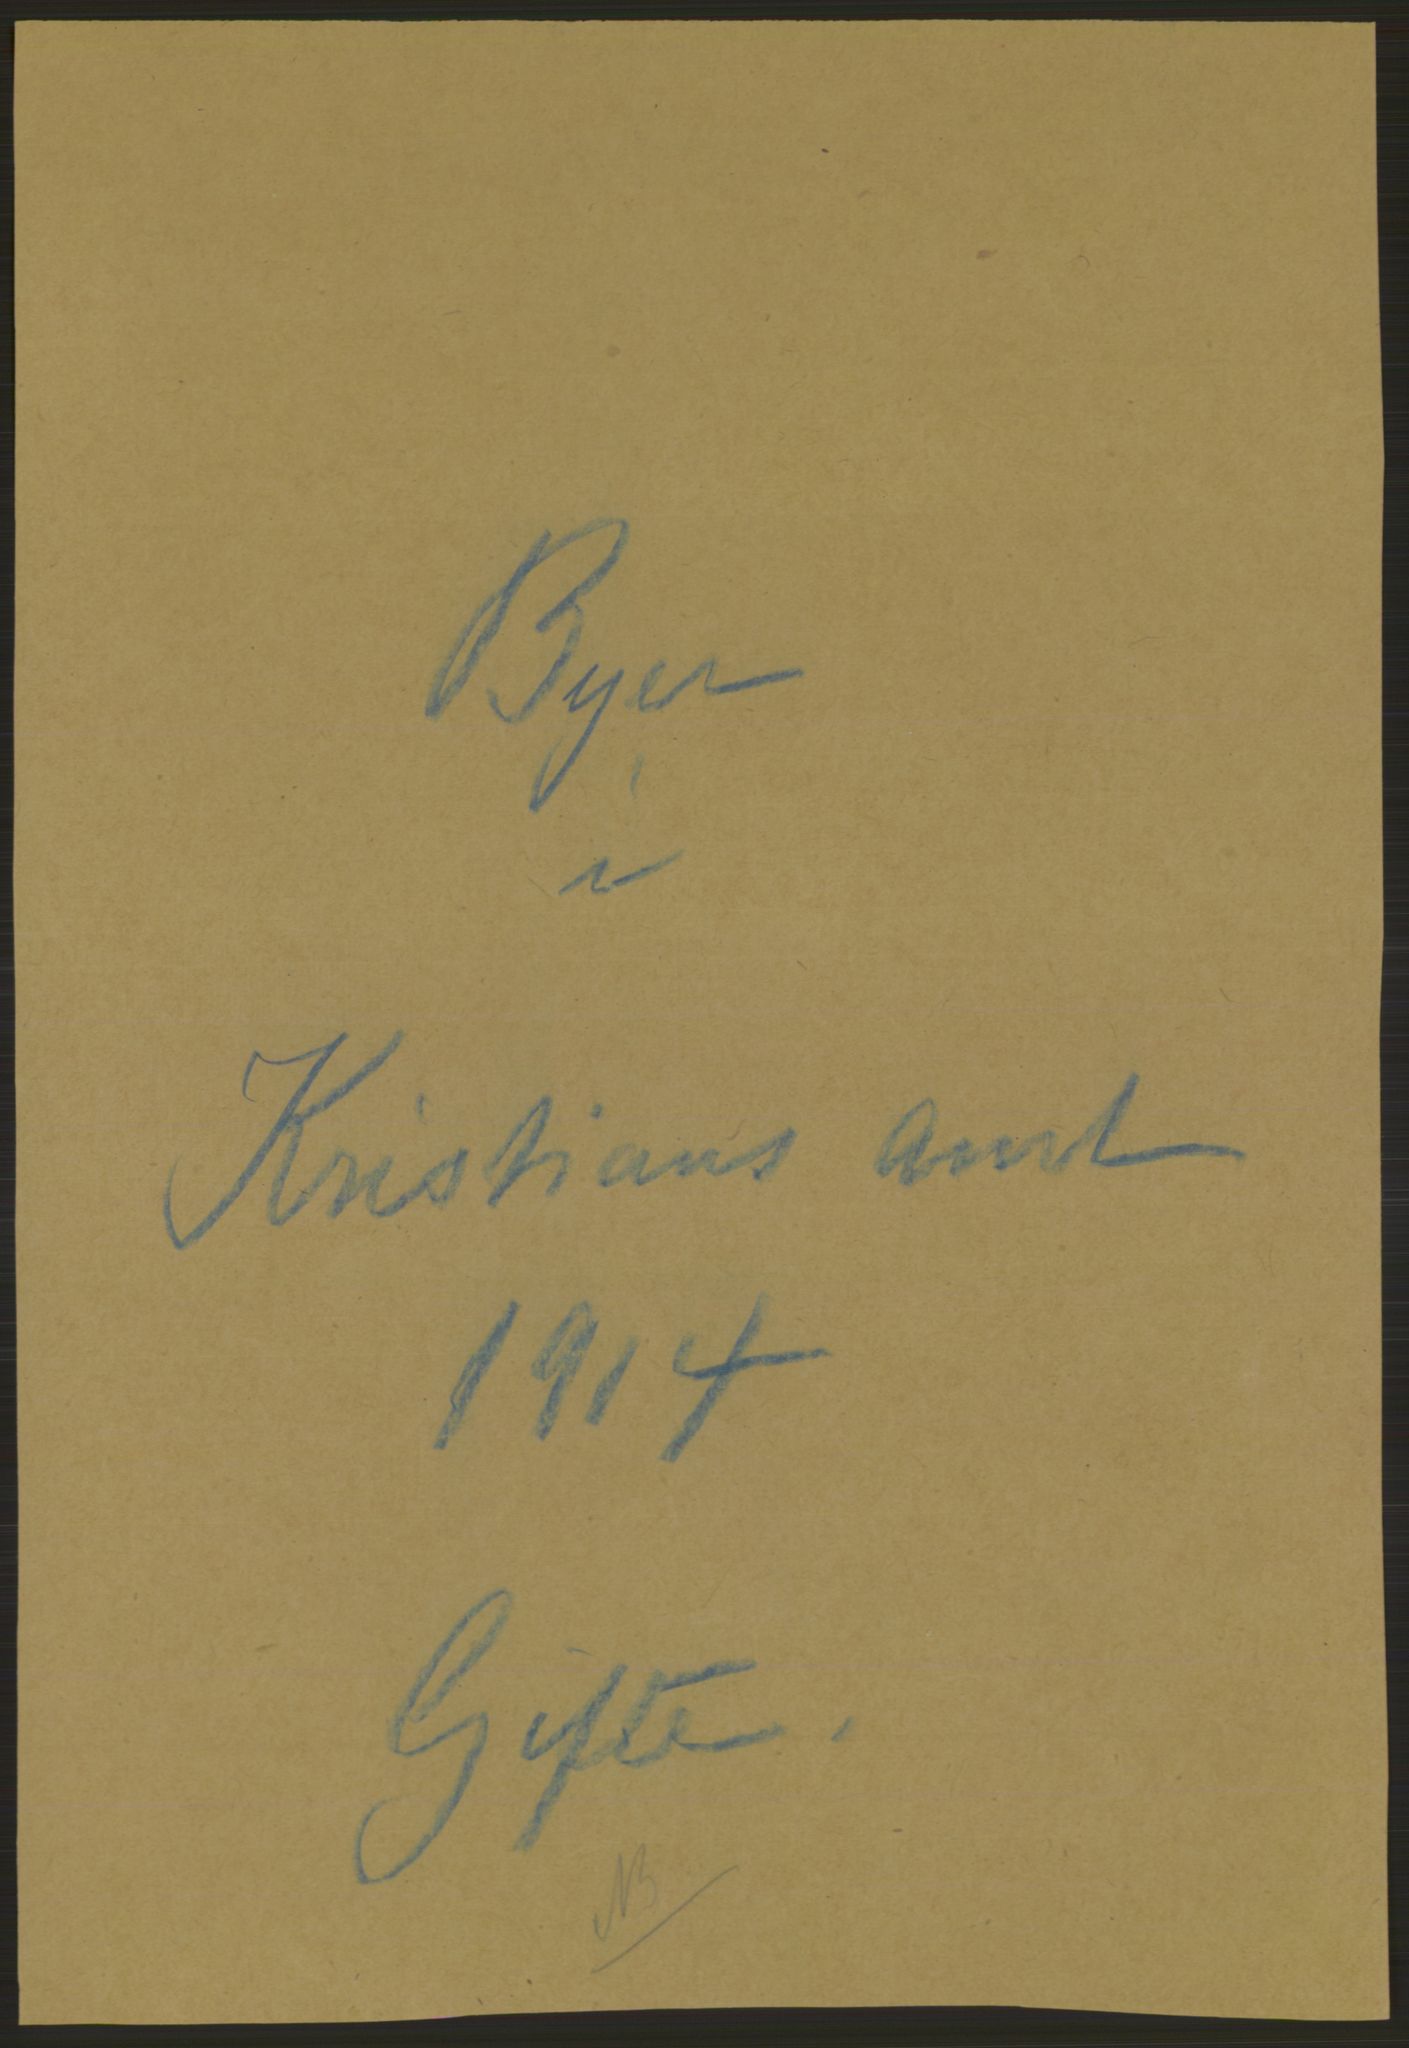 Byer
i
Kristians amt
1914
Gifte.
NB